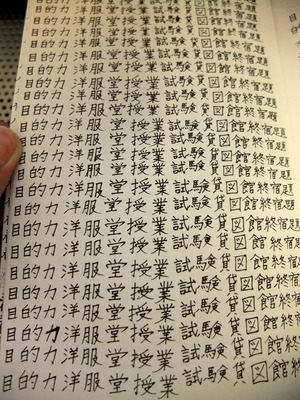 目的力洋服堂授業試験貸図館終宿題
目的力洋服堂授業試験貸図館終宿題
目的力洋服堂授業試験貸図館終宿題
目的力洋服堂授業試験貸図館終宿題
目的力洋服堂授業試験貸図館終宿題
目的力洋服堂授業試験貸図館終宿題
目的力洋服堂授業試験貸図館終宿題
目的力洋服堂授業試験貸図館終宿題
目的力洋服堂授業試験貸図館終宿題
目的力洋服堂授業試験貸図館終宿題
目的力洋服堂授業試験貸図館終宿題
目的力洋服堂授業試験貸図館終宿題
目的力洋服堂授業試験貸図館終宿題
目的力洋服堂授業試験貸図館終宿題
目的力洋服堂授業試験貸図館終宿
目的力洋服堂授業試験貸図館終宿
目的力洋服堂授業試験貸図館終
目的力洋服堂授業試験貸図館終
目的力洋服堂授業試験貸図館
目的力洋服堂授業試験貸図館